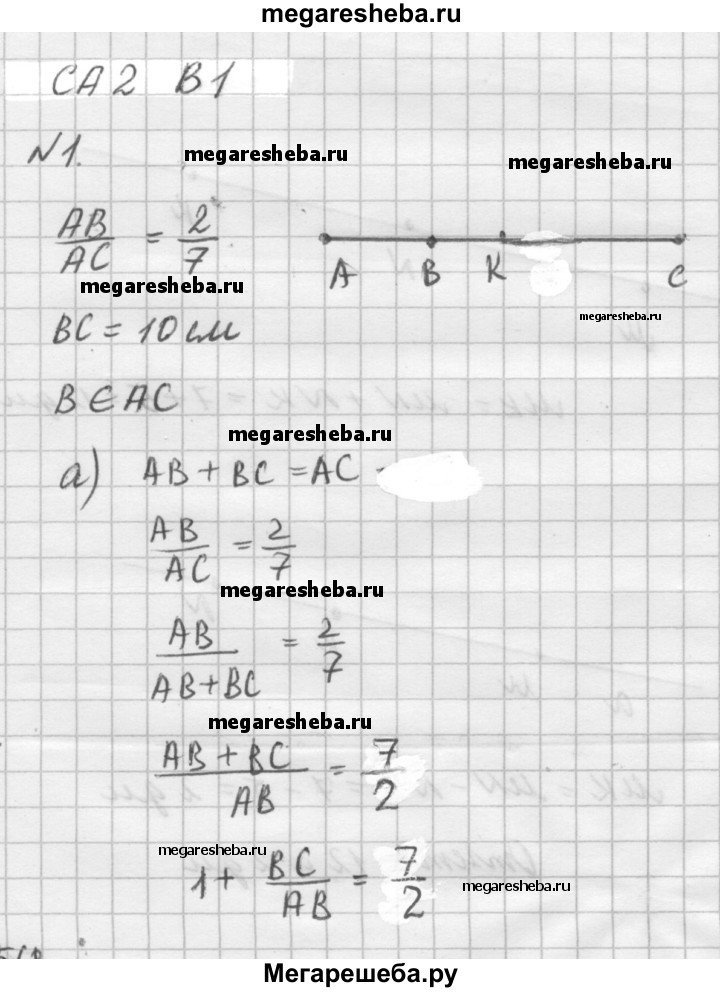 megaresheba.ru
СА2 В1
№1.
megaresheba.ru
megaresheba.ru
AB/AC = 2/7
A B K C
megaresheba.ru
megaresheba.ru
BC = 10 см
B ∈ AC
megaresheba.ru
а) AB + BC = AC
AB/AC = 2/7
megaresheba.ru
AB/(AB+BC) = 2/7
megaresheba.ru
(AB+BC)/AB = 7/2
megaresheba.ru
1 + BC/AB = 7/2
megaresheba.ru
Мегарешеба.ру